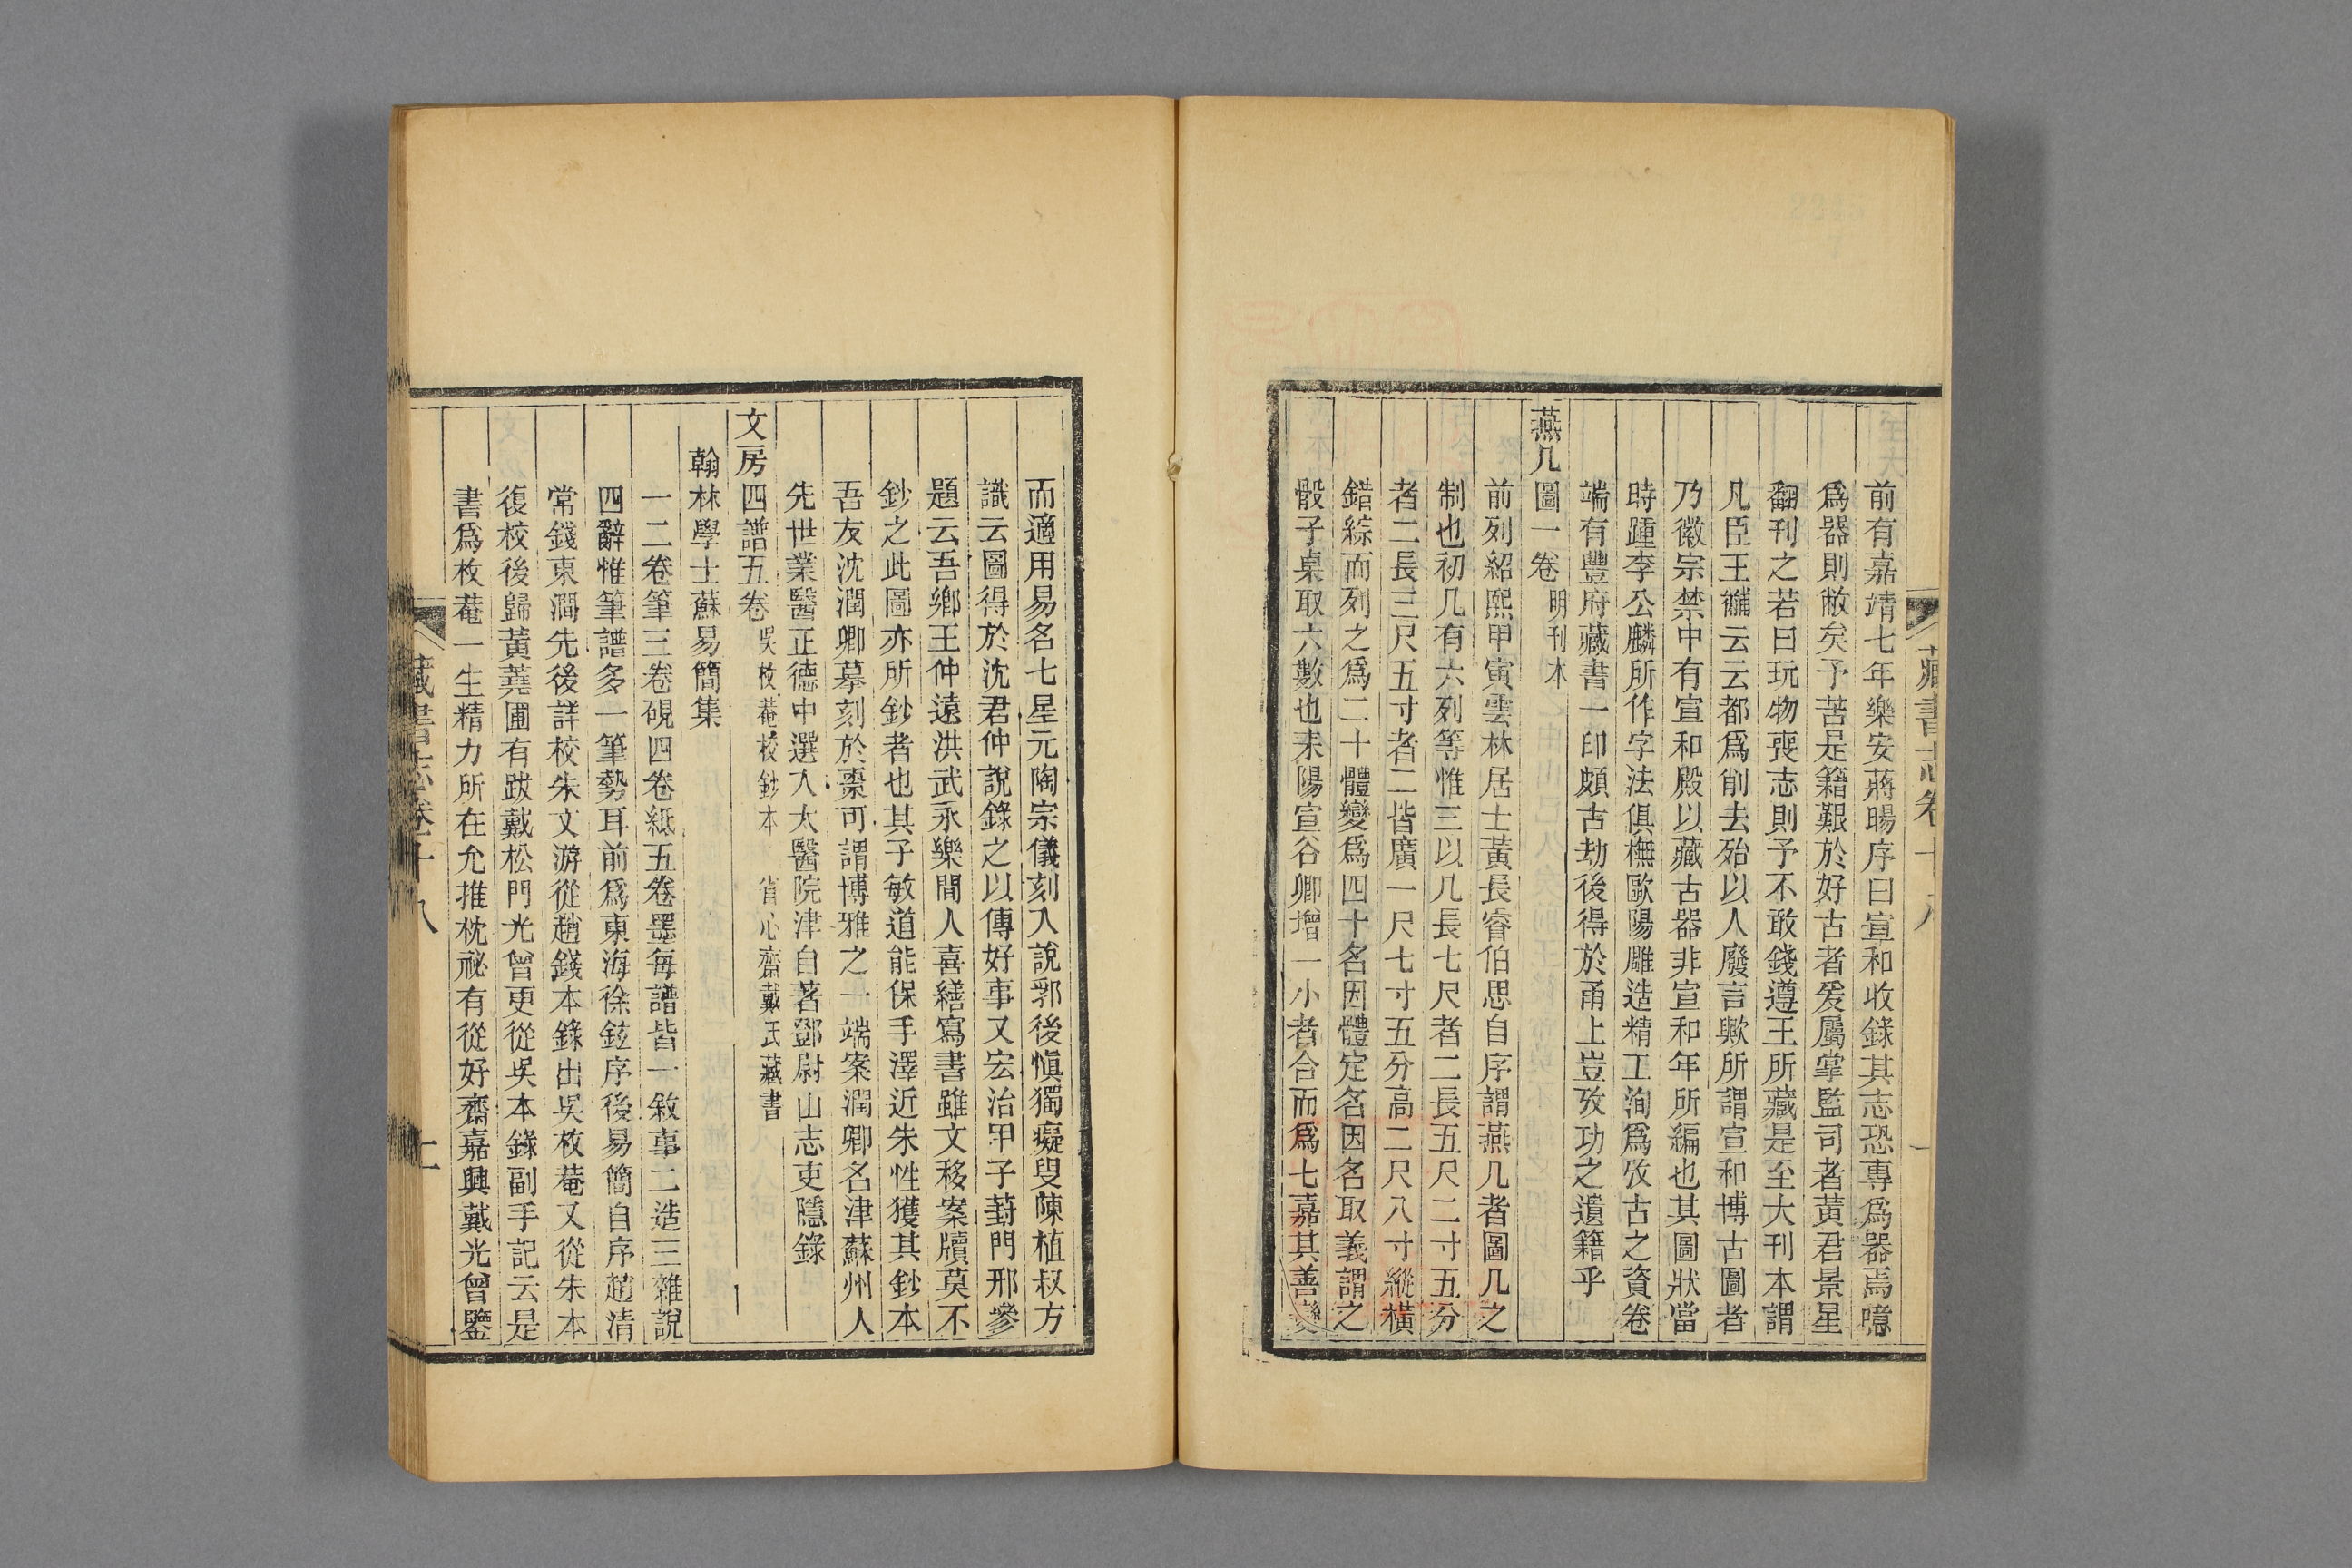 前有嘉靖七年樂安蔣暘序曰宣和收錄其志恐專爲器焉噫
爲器則敝矣予苦是籍艱於好古者爰屬掌監司者黃君景星
翻刊之若曰玩物喪志則予不敢錢遵王所藏是至大刊本謂
凡臣王黼云云都爲削去殆以人廢言歟所謂宣和博古圖者
乃徽宗禁中有宣和殿以藏古器非宣和年所編也其圖狀當
時踵李公麟所作字法俱橅歐陽雕造精工洵爲攷古之資卷
端有豐府藏書一印頗古劫後得於甬上豈攷功之遺籍乎
燕几圖一卷 明刊本
前列紹熙甲寅雲林居士黃長睿伯思自序謂燕几者圖几之
制也初几有六列等惟三以几長七尺者二長五尺二寸五分
者二長三尺五寸者二皆廣一尺七寸五分高二尺八寸縱橫
錯綜而列之爲二十體變爲四十名因體定名因名取義謂之
骰子桌取六數也耒陽宣谷卿增一小者合而爲七嘉其善變
而適用易名七星元陶宗儀刻入說郛後愼獨癡叟陳植叔方
識云圖得於沈君仲說錄之以傳好事又宏治甲子葑門邢參
題云吾鄉王仲遠洪武永樂間人喜繕寫書雖文移案牘莫不
鈔之此圖亦所鈔者也其子敏道能保手澤近朱性獲其鈔本
吾友沈潤卿摹刻於棗可謂博雅之一端案潤卿名津蘇州人
先世業醫正德中選入太醫院津自著鄧尉山志吏隱錄
文房四譜五卷 吳枚菴校鈔本 省心齋戴氏藏書
翰林學士蘇易簡集
一二卷筆三卷硯四卷紙五卷墨每譜皆一敘事二造三雜說
四辭惟筆譜多一筆勢耳前爲東海徐鉉序後易簡自序趙清
常錢東澗先後詳校朱文游從趙錢本錄出吳枚菴又從朱本
復校後歸黃蕘圃有跋戴松門光曾更從吳本錄副手記云是
書爲枚菴一生精力所在允推枕祕有從好齋嘉興戴光曾鑒